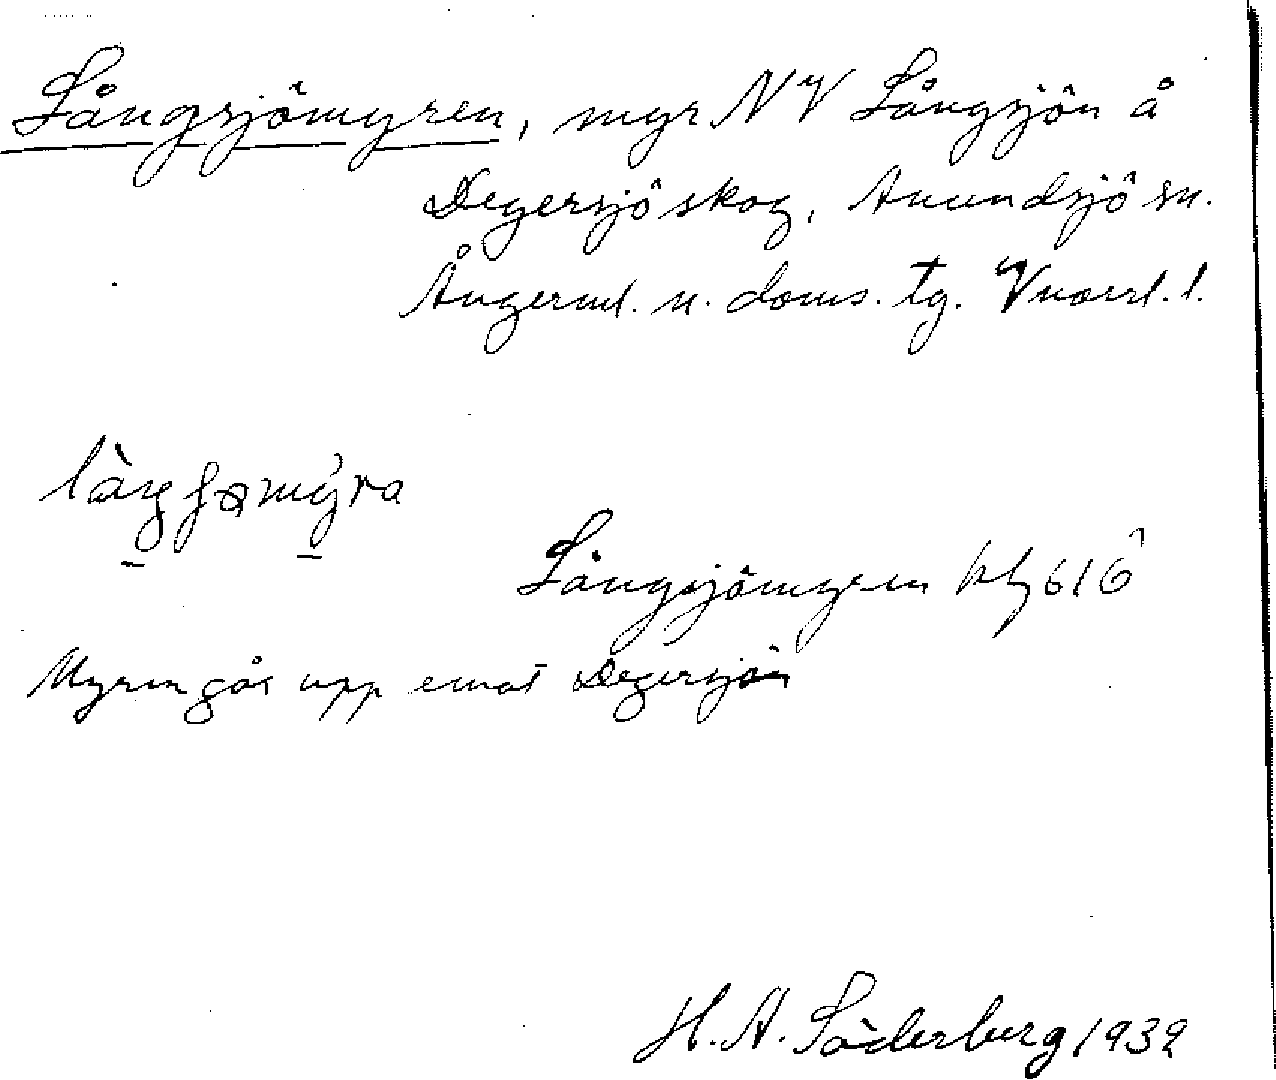 Långsjömyren, myr NV Långsjön å
Degersjö skog, Anundsjö sn.
Ångerml. n. doms. tg. Vnorrl. l.
Långsjömyren bl 616
Myren går upp emot Degersjön
H. A. Söderberg 1932